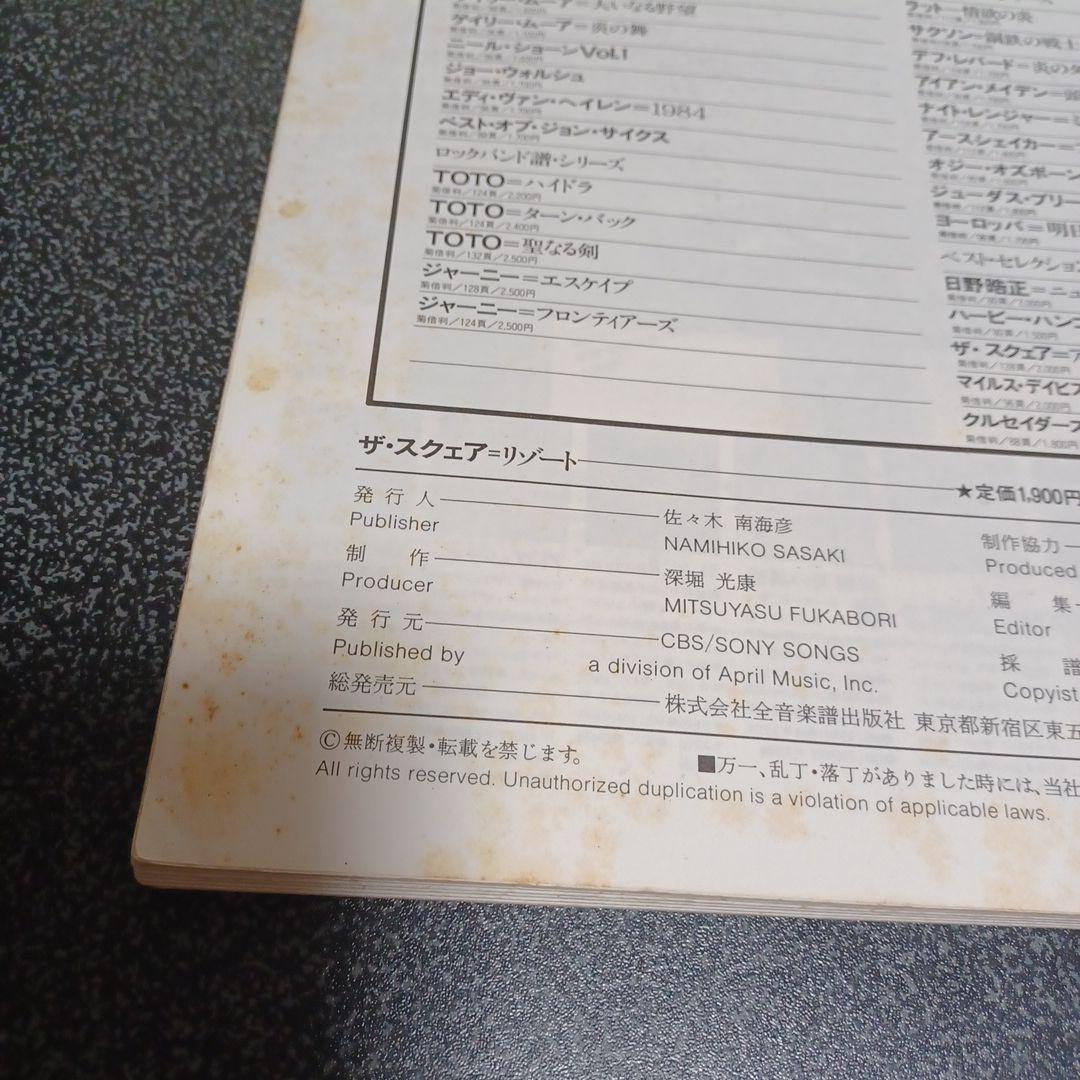 ゲイリー・ムーア=大いなる野望
ゲイリー・ムーア=炎の舞
ニール・ショーンVol.1
ジョー・ウォルシュ
エディ・ヴァン・ヘイレン=1984
ベスト・オブ・ジョン・サイクス
ロックバンド譜・シリーズ
TOTO=ハイドラ
菊倍判/124頁/2,200円
TOTO=ターン・バック
菊倍判/124頁/2,400円
TOTO=聖なる剣
菊倍判/132頁/2,500円
ジャーニー=エスケイプ
菊倍判/128頁/2,500円
ジャーニー=フロンティアーズ
菊倍判/124頁/2,500円
ラット=情欲の炎
サクソン=鋼鉄の戦士
デフ・レパード=炎の
アイアン・メイデン=
ナイト・レンジャー=
アースシェイカー=
オジー・オズボーン
ジューダス・プリー
ヨーロッパ=明日
ベスト・セレクション
日野皓正=ニュ
ハービー・ハンコ
ザ・スクェア=ア
マイルス・デイビス
菊倍判/96頁/2,000円
クルセイダーズ
菊倍判/88頁/1,800円
ザ・スクェア=リゾート
★定価1,900円
発行人 佐々木 南海彦
Publisher NAMIHIKO SASAKI
制作 深堀 光康
Producer MITSUYASU FUKABORI
発行元 CBS/SONY SONGS
Published by a division of April Music, Inc.
総発売元 株式会社全音楽譜出版社 東京都新宿区東五
制作協力
Produced
編集
Editor
採譜
Copyist
©無断複製・転載を禁じます。
■万一、乱丁・落丁がありました時には、当社
All rights reserved. Unauthorized duplication is a violation of applicable laws.